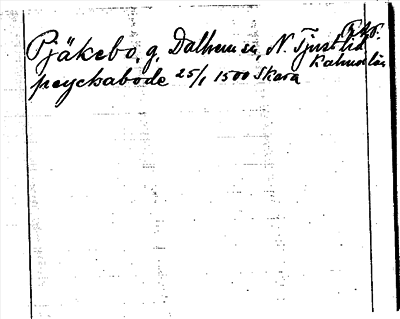 Pjäkebo, g. Dalhem sn, N. Tjust
Kalmar län
pryckabode 25/1 1500 Skara